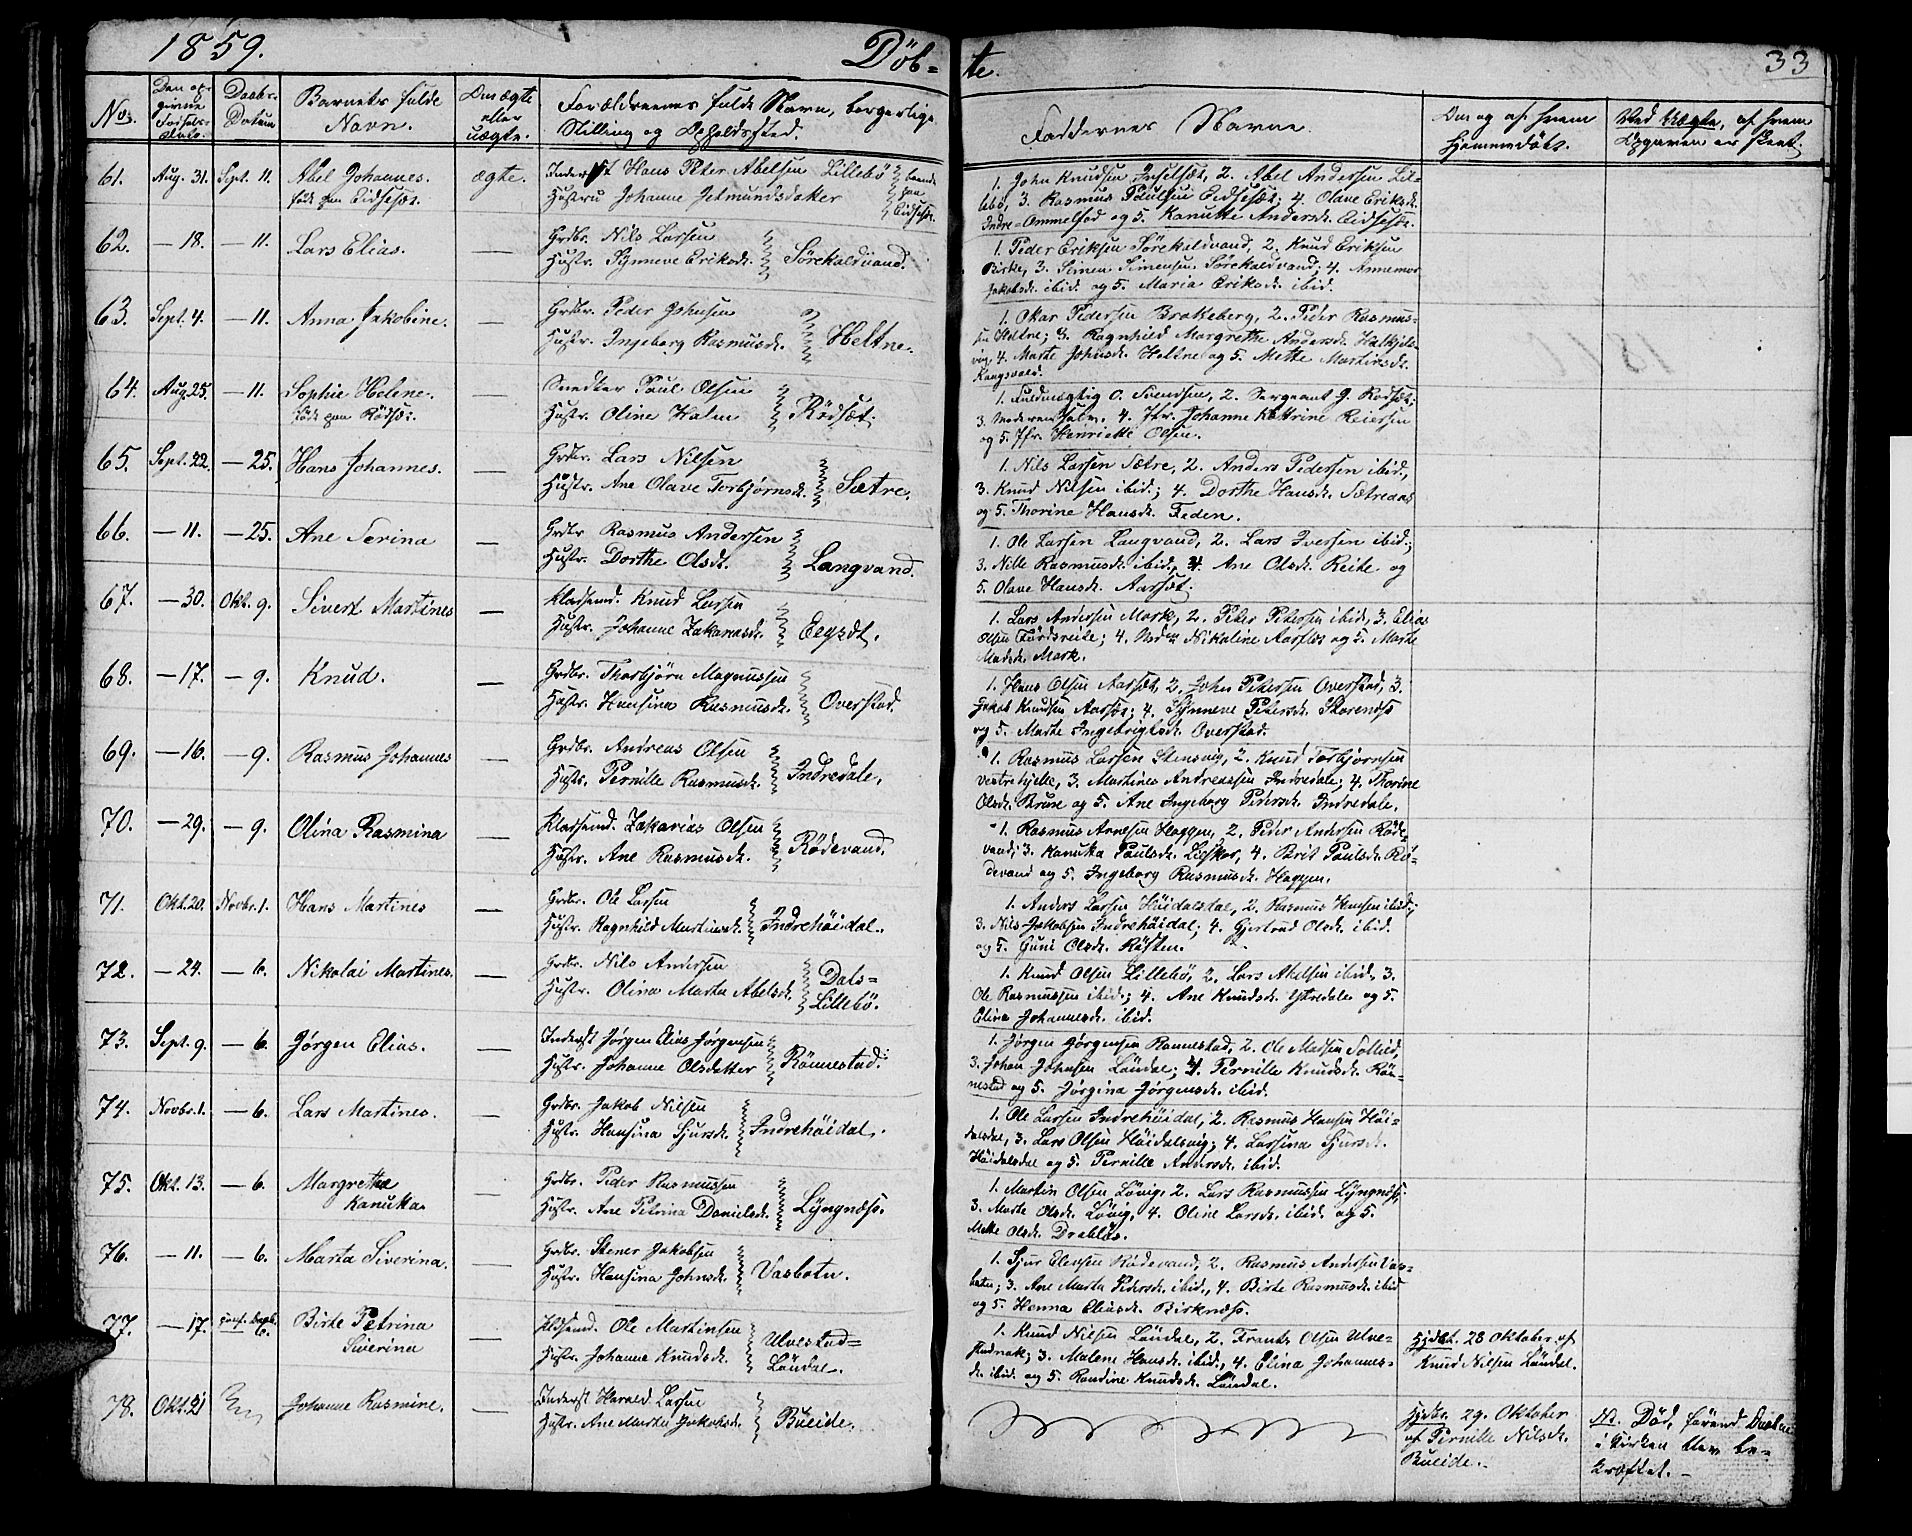 1859. Döb=te. 33
No. Den opgivne Födsels-dato. Daabs-Datum Barnets fulde Navn. Om ægte eller uægte. Forældrenes fulde Navn, borgerlige Stilling og Opholdssted. Faddernes Navne. Om og af hvem Hjemmedöbt. Ved Uægte, af hvem Opgaven er skeet.
61. Aug. 31. Sept. 11. Abel Johannes. ægte. Inderst Hans Peter Abelsen Lillebö
född paa Eidsesæt. Hustru Johanne Jetmundsdatter Eidsesæt.
1. John Knudsen 2. Abel Andersen Lil-
lebö, 3. Rasmus Paulsen Eidsesæt; 4. Olave Eriksdr.
Indre-Ommelfod og 5. Kanutte Andersdr. Eidsesæt.
62. — 18. — 11. Lars Elias. — Grdbr. Nils Larsen
Hustr. Synneve Eriksdr. Sörekaldvand.
1. Peder Eriksen Sörekaldvand, 2. Knud Eriksen
Birke, 3. Simen Simensen Sörekaldvand; 4. Annemor
Jakobsdr. ibid og 5. Maria Eriksdr. ibid.
63. Sept. 4. — 11. Anna Jakobine. — Grdbr. Peder Johnsen
Hustr. Ingeborg Rasmusdr. Heltne.
1. Okar Pedersen Brakeberg, 2. Peder Rasmus-
sen Heltne; 3. Ragnhild Margrethe Andersdr.
4. Marte Johnsdr. Heltne og 5. Mette Martinsdr.
64. Aug. 25. — 11. Sophie Helene. — Snedker Paul Olsen
född paa Rödsæt. Hustr. Oline Holm Rödsæt.
1. Fuldmægtig O. Svendsen, 2. Sergeant G. Rödsæt;
3. 4. Jfr. Johanne Katrine Reiersen
og 5. Jfr. Henriette Olsen.
65. Sept. 22. — 25. Hans Johannes. — Grdbr. Lars Nilsen
Hustr. Ane Olave Torbjørnsdr. Sætre.
1. Nils Larsen Sætre, 2. Anders Pedersen ibid.,
3. Knud Nilsen ibid; 4. Dorthe Hansdr. Sætredal
og 5. Thorine Hansdr. Feden.
66. — 11. — 25. Ane Serina — Grdbr. Rasmus Andersen
Hustr. Dorthe Olsdr. Langvand.
1. Ole Larsen Langvand, 2. Lars Iversen ibid.;
3. Nille Rasmusdr. ibid, 4. Ane Olsdr. Reite og
5. Olave Hansdr. Aarsæt.
67. — 30. Okt. 9. Sivert Martines — Knud Larsen
Hustr. Johanne Zakariasdr.
1. Lars Andersen Mork, 2. Peter Petersen ibid, 3. Elias
Olsen 4. Nikoline Aarflot og 5. Marte
Madsdr. Mork.
68. — 17. — 9. Knud. — Grdbr. Thorbjörn Magnussen
Hustr. Hansina Rasmusdr. Overstad.
1. Hans Olsen Aarsæt, 2. John Petersen Overstad, 3.
Jakob Knudsen Aarsæt; 4. Synneve Petersdr.
og 5. Marte Ingebrigtsdr. Overstad.
69. — 16. — 9. Rasmus Johannes — Grdbr. Andreas Olsen
Hustr. Pernille Rasmusdr. Indredale.
1. Rasmus Larsen Stensvig, 2. Knud Torbjørnsen
3. Martines Andreassen Indredale; 4. Thorine
Olsdr. Brune og 5. Ane Ingeborg Pedersdr. Indredale.
70. — 29. — 9. Olina Rasmina — Zakarias Olsen
Hustr. Ane Rasmusdr. Rödevand.
1. Rasmus Arnesen Haggen, 2. Peder Andersen Röde-
vand; 3. Kanutta Paulsdr. 4. Brit Paulsdr. Rö-
devand og 5. Ingeborg Rasmusdr. Haggen.
71. Okt. 20. Novbr. 1. Hans Martines — Grdbr. Ole Larsen
Hustr. Ragnhild Martinsdr. Indrehöidal.
1. Anders Larsen Höidalsdal, 2. Rasmus Hansen ibid.;
3. Nils Jakobsen Indrehöidal; 4. Gjertrud Olsdr. ibid.
og 5. Guni Olsdr. Røsten.
72. — 24. — 6. Nikolai Martines. — Grdbr. Nils Andersen
Hustr. Olina Marta Abelsdr. Dals=
Lillebö.
1. Knud Olsen Lillebö, 2. Lars Abelsen ibid, 3.
Ole Rasmussen ibid; 4. Ane Knudsdr. Ytredale og 5.
Elina Johannesdr. ibid.
73. Sept. 9. — 6. Jørgen Elias. — Inderst Jørgen Elias Jørgensen
Hustr. Johanne Olsdatter Rönnestad.
1. Jørgen Jørgensen Rönnestad, 2. Ole Madsen Sollied,
3. Johan Johnsen Löndal; 4. Pernille Knudsdr. Rön-
nestad og 5. Jørgina Jørgensdr. ibid.
74. Novbr. 1. — 6. Lars Martines. — Grdbr. Jakob Nilsen
Hustr. Hansina Sjursdr. Indrehöidal.
1. Ole Larsen Indrehöidal, 2. Rasmus Hansen Höi-
dalsdal, 3. Lars Olsen Höidalsvig; 4. Larsina Sjursdr.
Höidalsdal og 5. Pernille Andersdr. ibid.
75. Okt. 13. — 6. Margrethe — Grdbr. Peder Rasmussen
Kanutta Hustr. Ane Petrina Danielsdr. Lÿngnæs.
1. Martin Olsen Lövig, 2. Lars Rasmussen Lÿngnæs;
3. Marte Olsdr. Lövig, 4. Oline Larsdr. ibid. og 5.
Mette Olsdr. Drabløs.
76. — 11. — 6. Marta Siverina. — Grdbr. Stener Jakobsen
Hustr. Hansina Johnsdr. Vasbotn.
1. Sjur Elensen Rödevand, 2. Rasmus Andersen Vas-
botn; 3. Ane Marta Pedersdr. ibid., 4. Birte Rasmusdr. ibid
og 5. Henna Eliasdr. Birknæs.
77. — 17. 6. Birte Petrina — Ole Martinsen
Siverina Hustr. Johanne Knudsdr. Ulvestad=
Löndal.
1. Knud Nilsen Löndal, 2. Frants Olsen Ulve-
stadnak; 3. Malene Hansdr. ibid., 4. Elina Johannes-
dr. ibid. og 5. Randine Knudsdr. Löndal.
Hjdbt. 28 Oktober af
Knud Nilsen Löndal.
78. Okt. 21 Johanne Rasmine. — Inderst Harald Larsen
Hustr. Ane Marta Jakobsdr. Bueide.
Hjdbt. 29. Oktober
af Pernille Nilsdr.
Bueide.
Nt. Död, förend Daaben
i Kirken blev be-
kræftet.